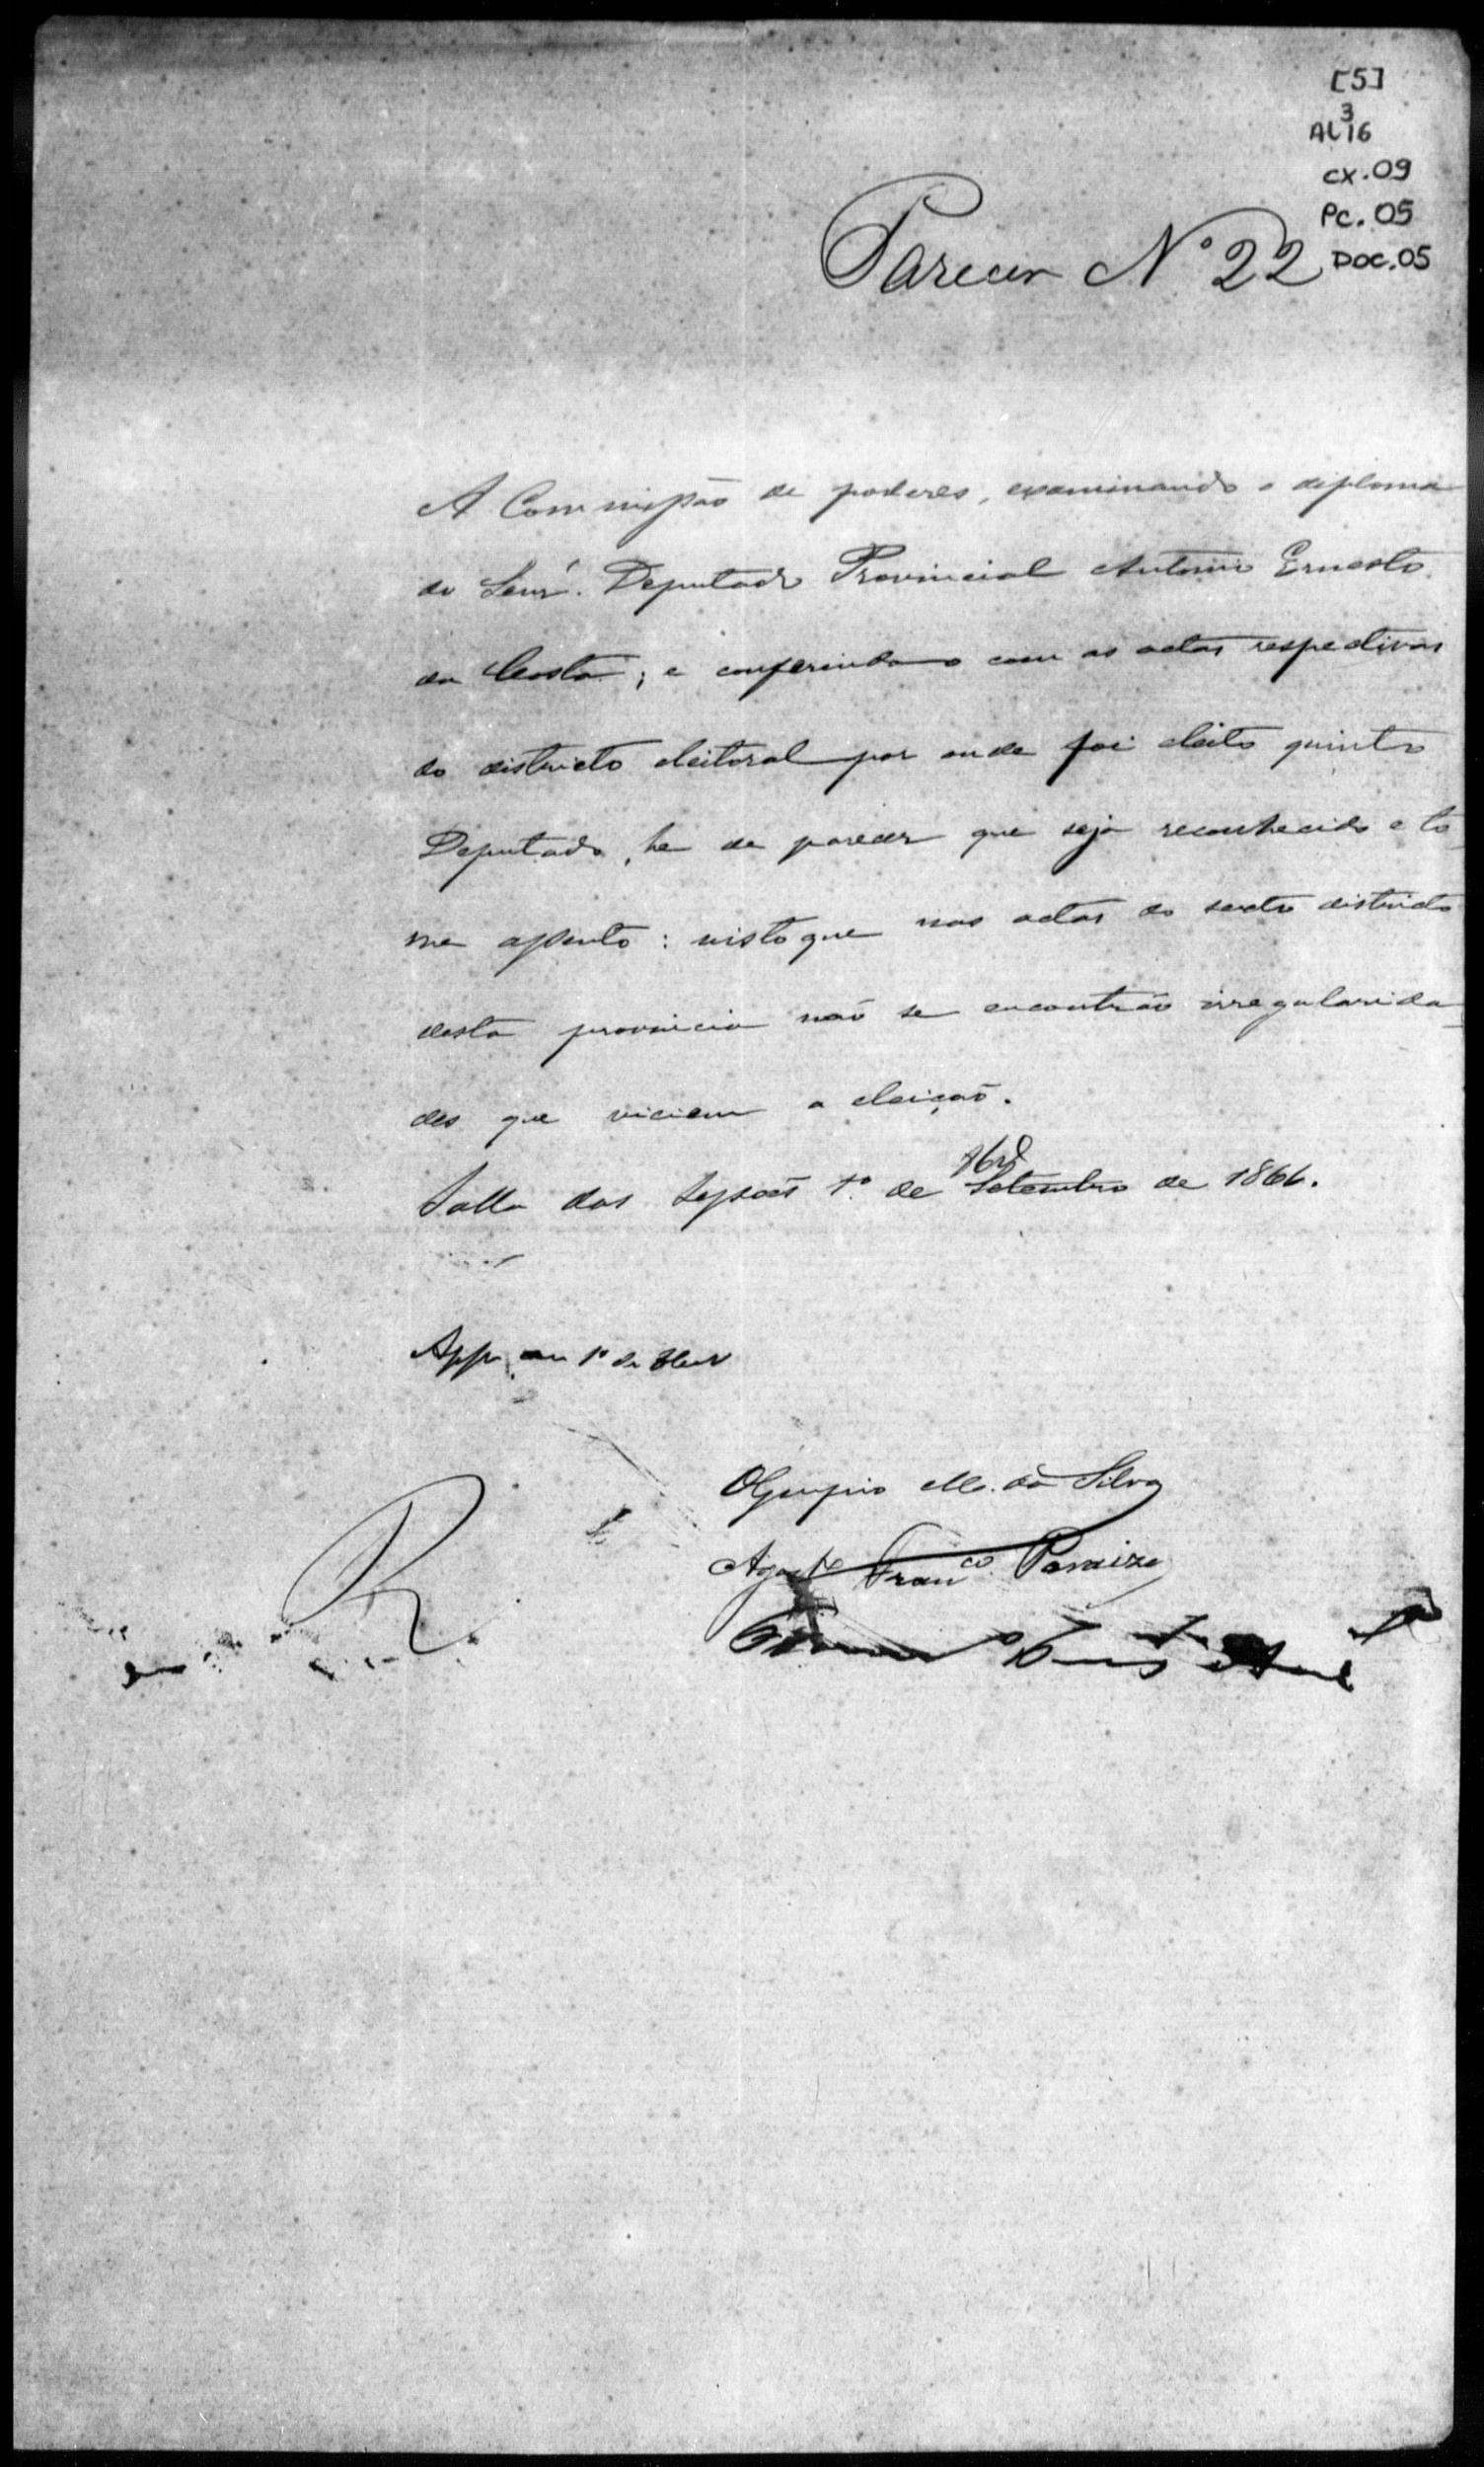 [5]
3
AL16
CX.09
PC.05
Parecer Nº 22
DOC.05
A Commissão de poderes, examinando o diploma
do Senr. Deputado Provincial Antonio Ernesto
da Costa; e conferindo o com as actas respectivas
do districto eleitoral por onde foi eleito quinto
Deputado, he de parecer que seja reconhecido e to
me assento: visto que nas actas do sexto districto
desta provincia não se encontrão irregularida
des que viciem a eleição.
Salla das Sessões 1º de Setembro de 1866.
App. em 1º de
R
Olympio M. da Silva
Franco. Paraizo